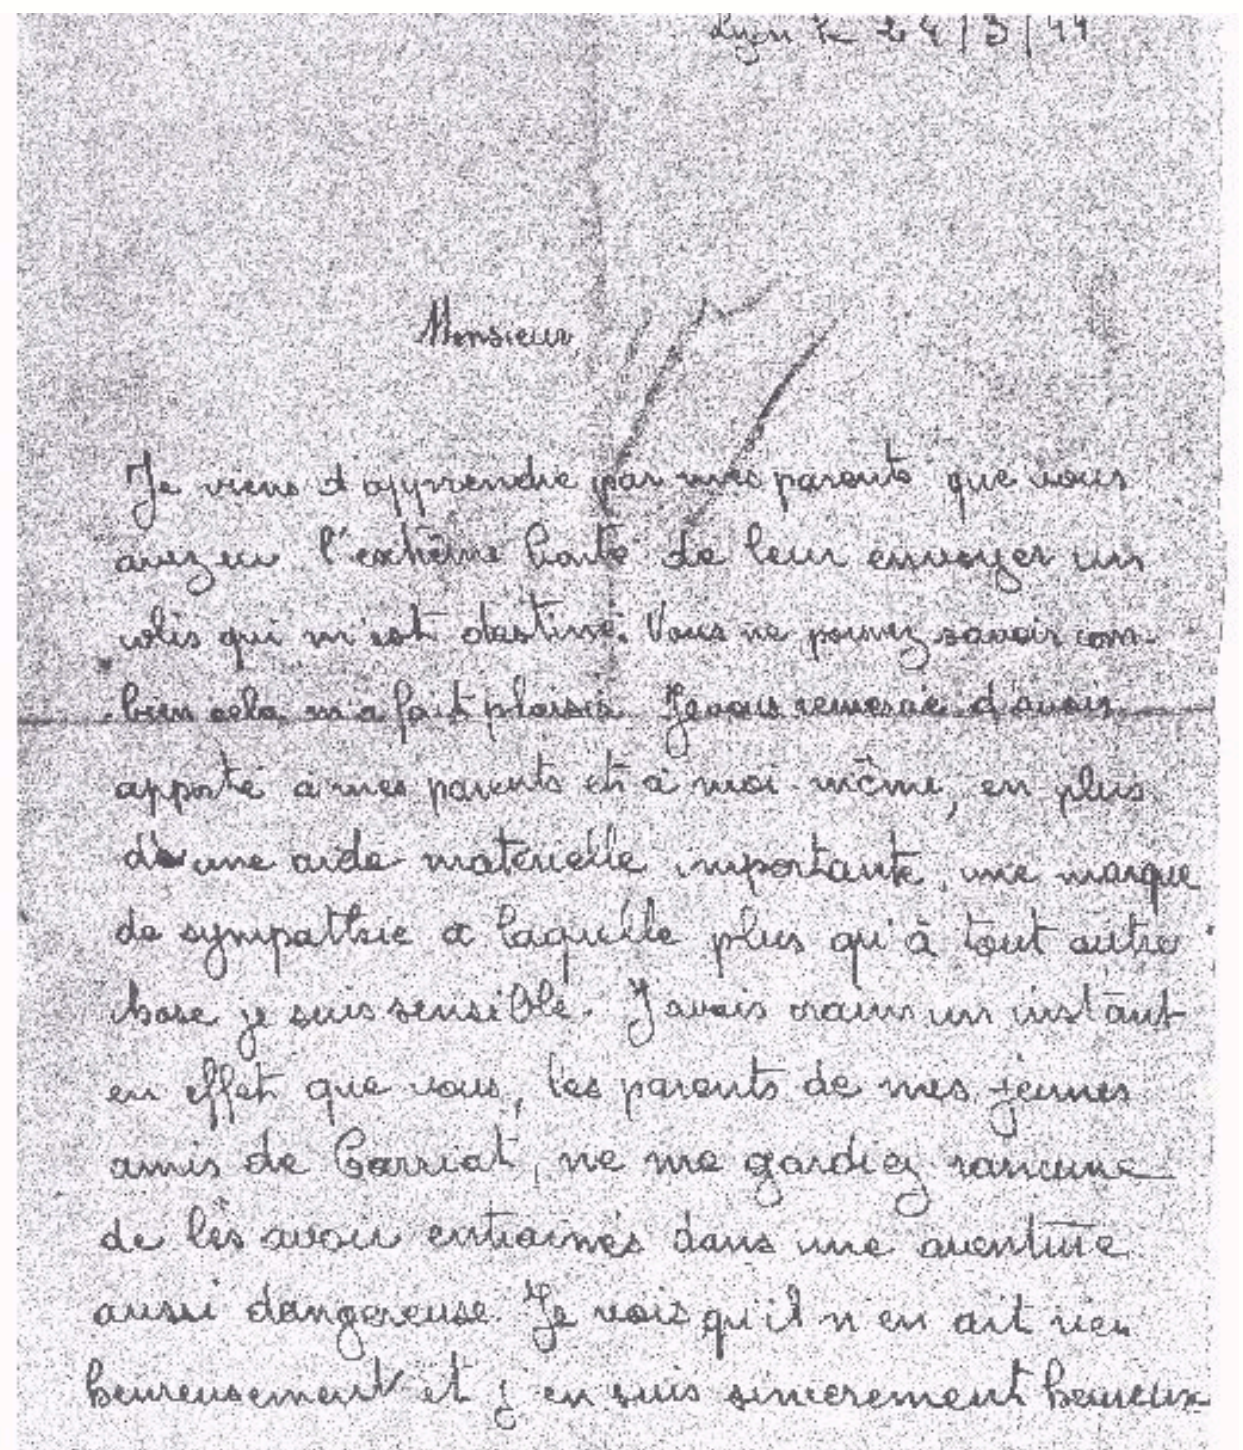 Lyon le 24/3/44
Monsieur,
Je viens d'apprendre par mes parents que vous
avez eu l'extrême bonté de leur envoyer un
colis qui m'est destiné. Vous ne pouvez savoir com-
bien cela m'a fait plaisir. Je vous remercie d'avoir
apporté à mes parents et à moi-même, en plus
de une aide matérielle importante, une marque
de sympathie a laquelle plus qu'à tout autre
chose je suis sensible. J'avais crains un instant
en effet que vous, les parents de mes jeunes
amis de Carriat, ne me gardiez rancune
de les avoir entrainés dans une aventure
aussi dangereuse. Je vois qu'il n'en ait rien
heureusement et j'en suis sincerement heureux